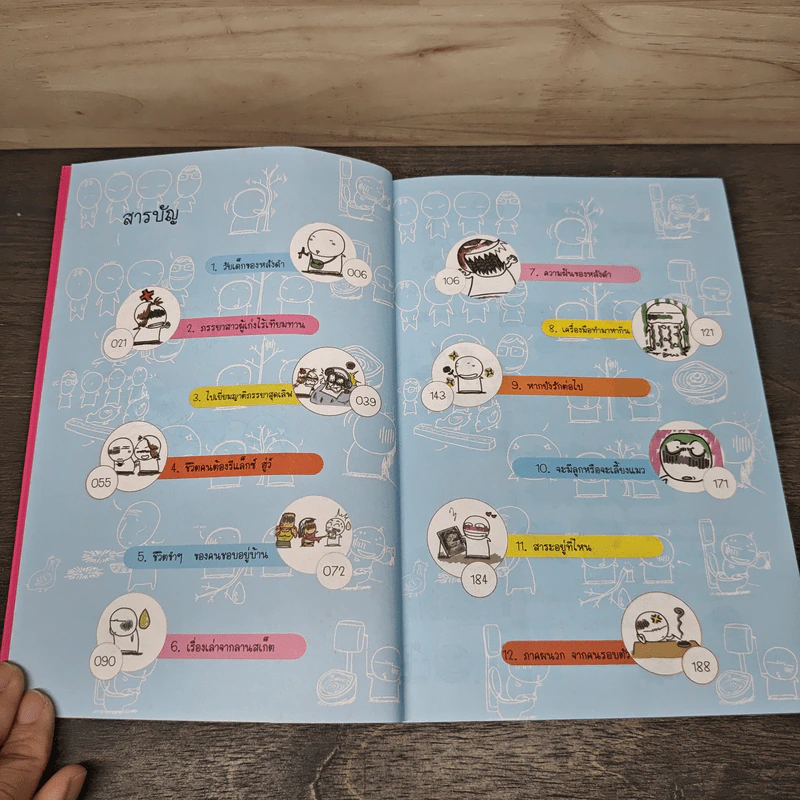 สารบัญ
1. วัยเด็กของหลังดำ
006
2. ภรรยาสาวผู้เก่งไร้เทียมทาน
021
3. ไปเยี่ยมญาติภรรยาสุดเลิฟ
039
4. ชีวิตคนต้องรีแล็กซ์ สู่ว์
055
5. ชีวิตขำๆ ของคนชอบอยู่บ้าน
072
6. เรื่องเล่าจากลานสเก็ต
090
7. ความฝันของหลังดำ
106
8. เครื่องมือทำมาหากิน
121
9. หากยังรักต่อไป
143
10. จะมีลูกหรือจะเลี้ยงแมว
171
11. สาระอยู่ที่ไหน
184
12. ภาคผนวก จากคนรอบตัว
188